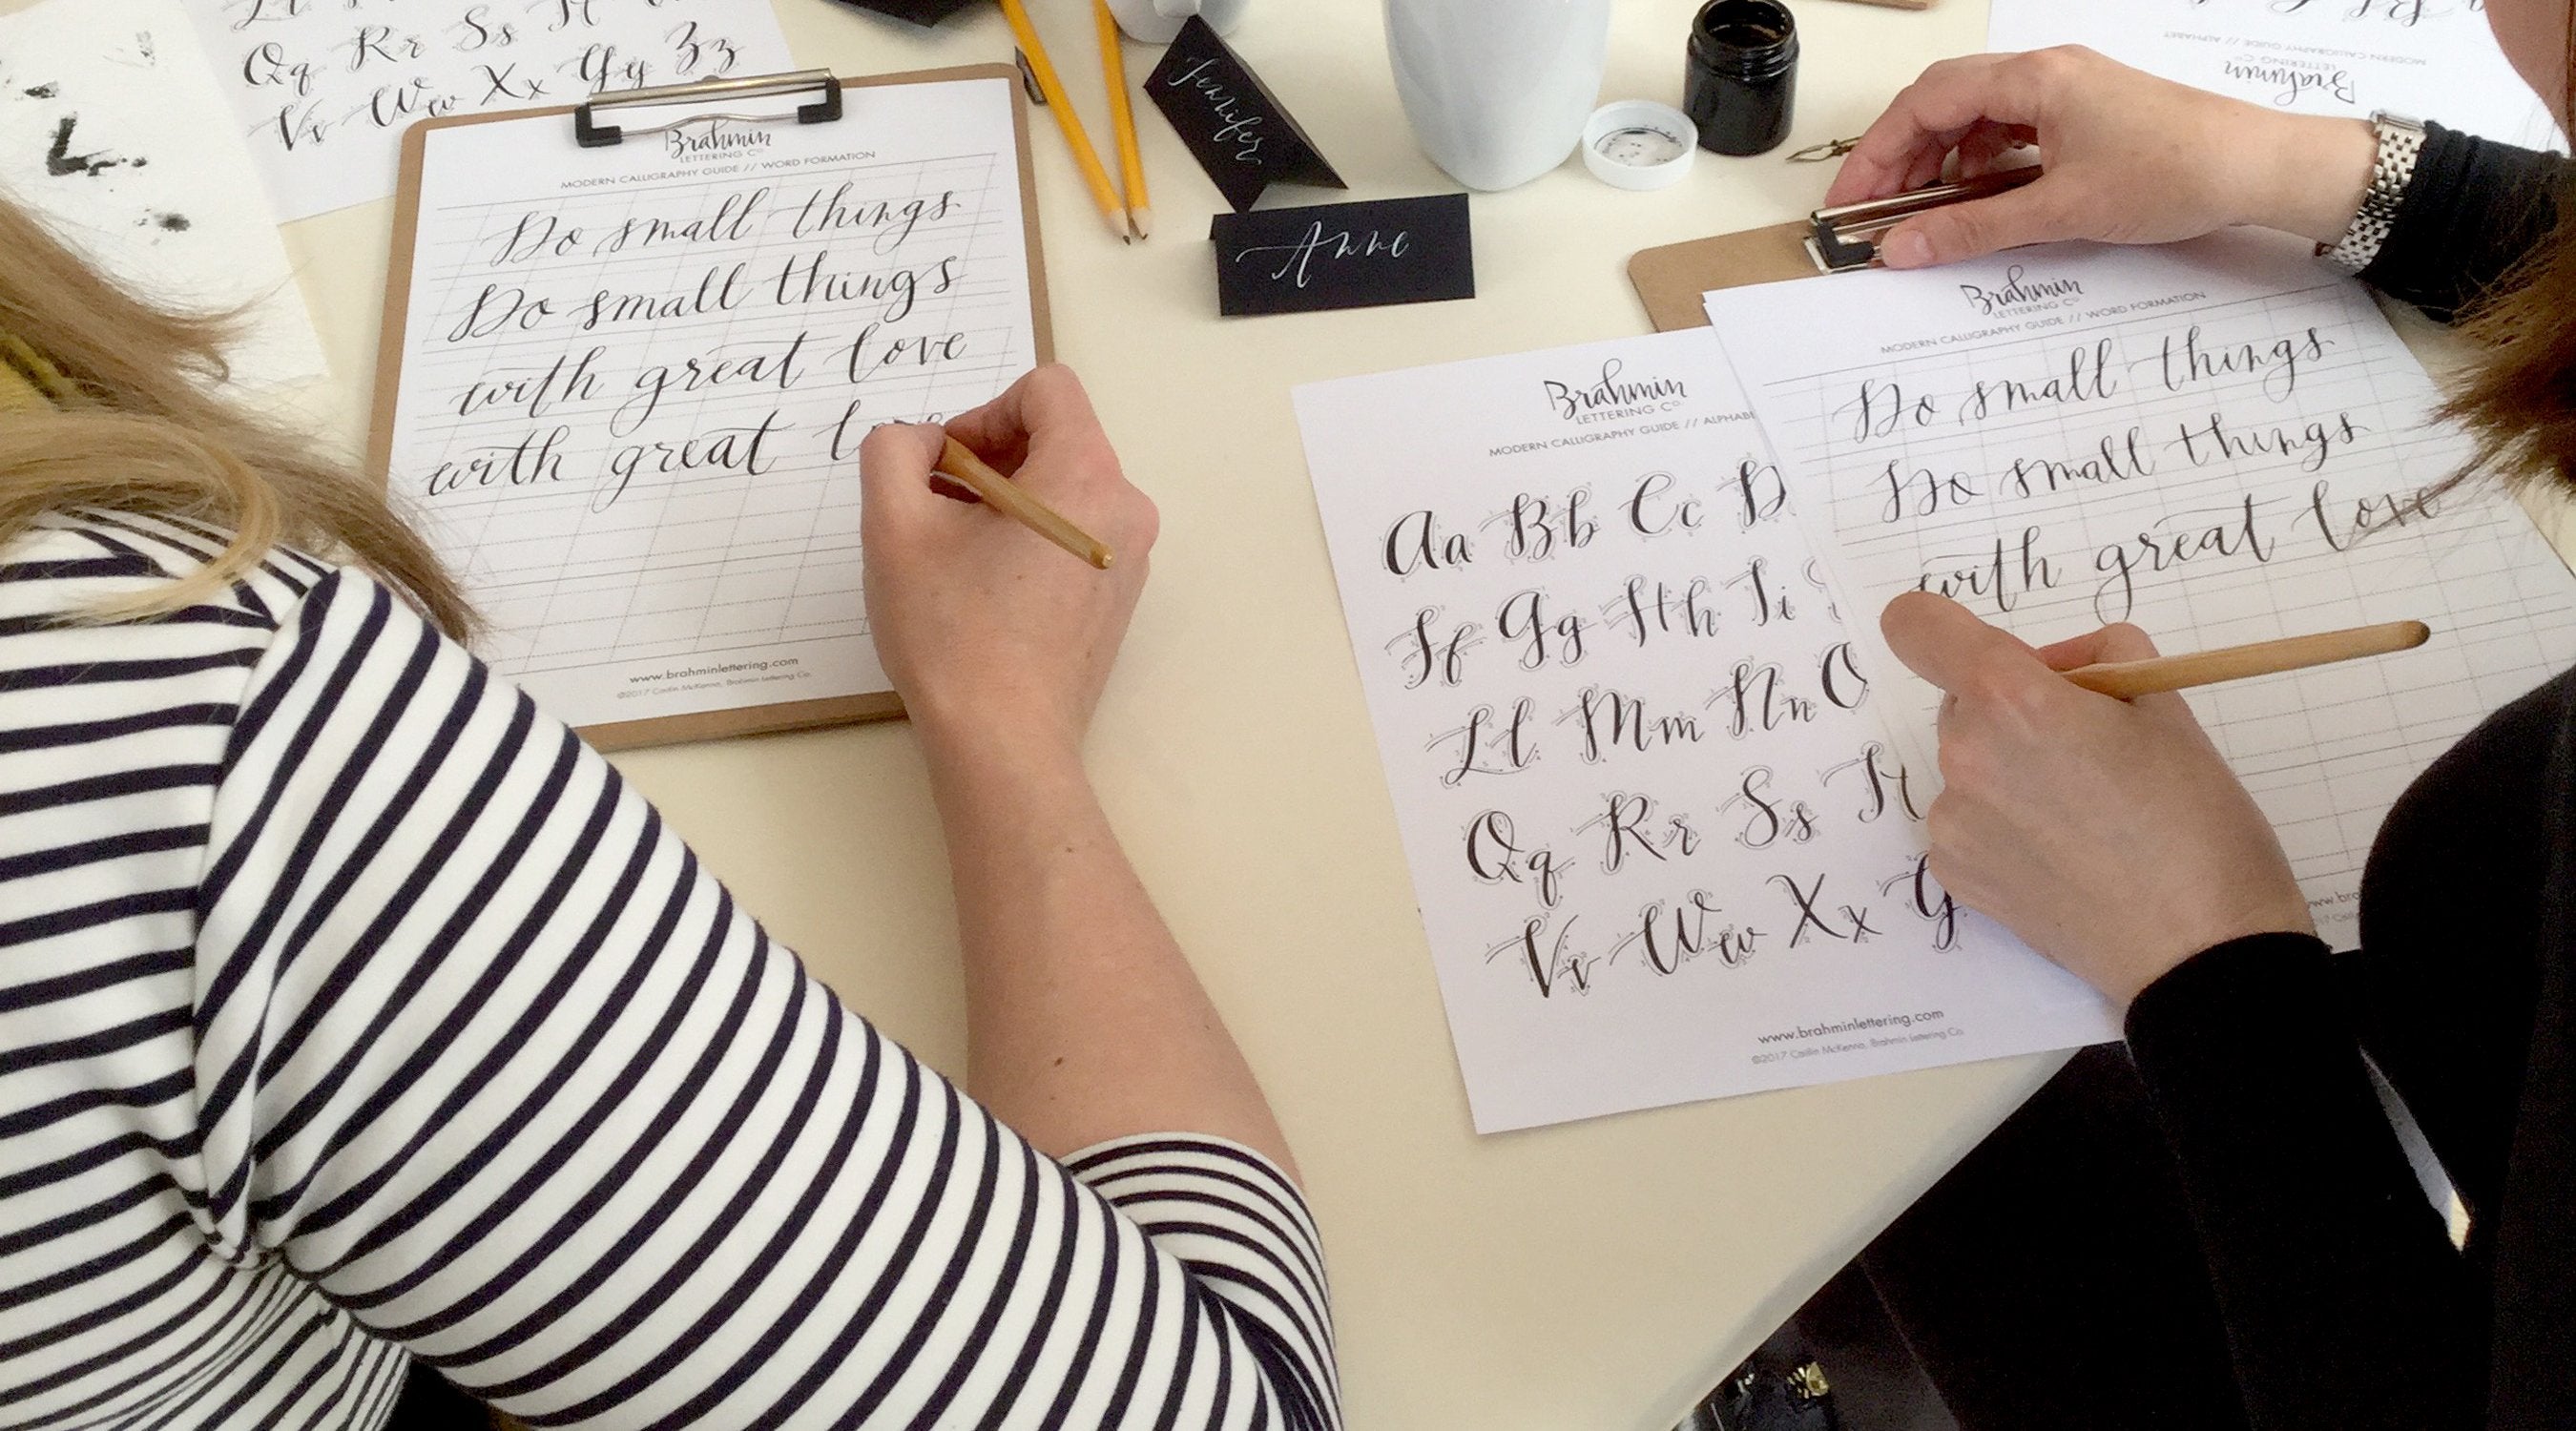 Qq Rr Ss
Vv Ww Xx Yy Zz
Brahmin
LETTERING Cº
MODERN CALLIGRAPHY GUIDE // WORD FORMATION
Do small things
Do small things
with great love
with great love
www.brahminlettering.com
©2017 Caitlin McKenna, Brahmin Lettering Co.
Jennifer
Anne
MODERN CALLIGRAPHY GUIDE // ALPHABET
LETTERING Cº
Brahmin
Brahmin
LETTERING Cº
MODERN CALLIGRAPHY GUIDE // ALPHABE
Aa Bb Cc D
Ff Gg Hh Ii
Ll Mm Nn O
Qq Rr Ss Tt
Vv Ww Xx Y
www.brahminlettering.com
©2017 Caitlin McKenna, Brahmin Lettering Co.
Brahmin
LETTERING Cº
MODERN CALLIGRAPHY GUIDE // WORD FORMATION
Do small things
Do small things
with great love